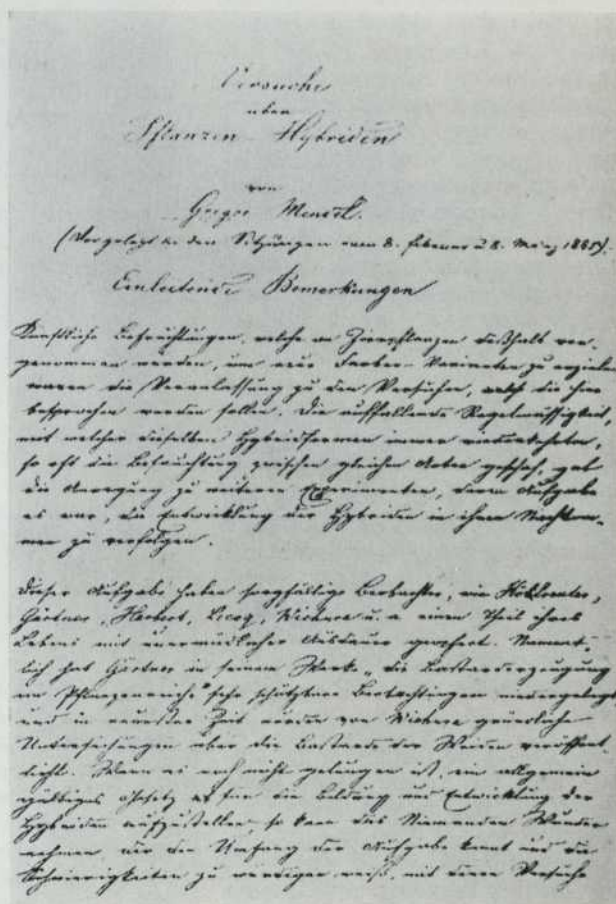 Versuche
über
Pflanzen-Hybriden
von
Gregor Mendel.
(Vorgelegt in den Sitzungen vom 8. Februar u 8. März 1865).
Einleitende Bemerkungen
Künstliche Befruchtungen, welche an Zierpflanzen deßhalb vor-
genommen wurden, um neue Farben-Varianten zu erzielen
waren die Veranlassung zu den Versuchen, welche hier
besprochen werden sollen. Die auffallende Regelmässigkeit,
mit welcher dieselben Hybridformen immer wiederkehrten,
so oft die Befruchtung zwischen gleichen Arten geschah, gab
die Anregung zu weiteren Experimenten, deren Aufgabe
es war, die Entwicklung der Hybriden in ihren Nachkom-
men zu verfolgen.
Dieser Aufgabe haben sorgfältige Beobachter, wie Kölreuter,
Gärtner, Herbert, Lecoq, Wichura u. a. einen Theil ihres
Lebens mit unermüdlicher Ausdauer geopfert. Nament-
lich hat Gärtner in seinem Werke „die Bastarderzeugung
im Pflanzenreiche" sehr schätzbare Beobachtungen niedergelegt
und in neuester Zeit wurden von Wichura gründliche
Untersuchungen über die Bastarde der Weiden veröffent-
licht. Wenn es noch nicht gelungen ist, ein allgemein
gültiges Gesetz für die Bildung und Entwicklung der
Hybriden aufzustellen, so kann das Niemanden Wunder
nehmen, der den Umfang der Aufgabe kennt und die
Schwierigkeiten zu würdigen weiß, mit denen Versuche